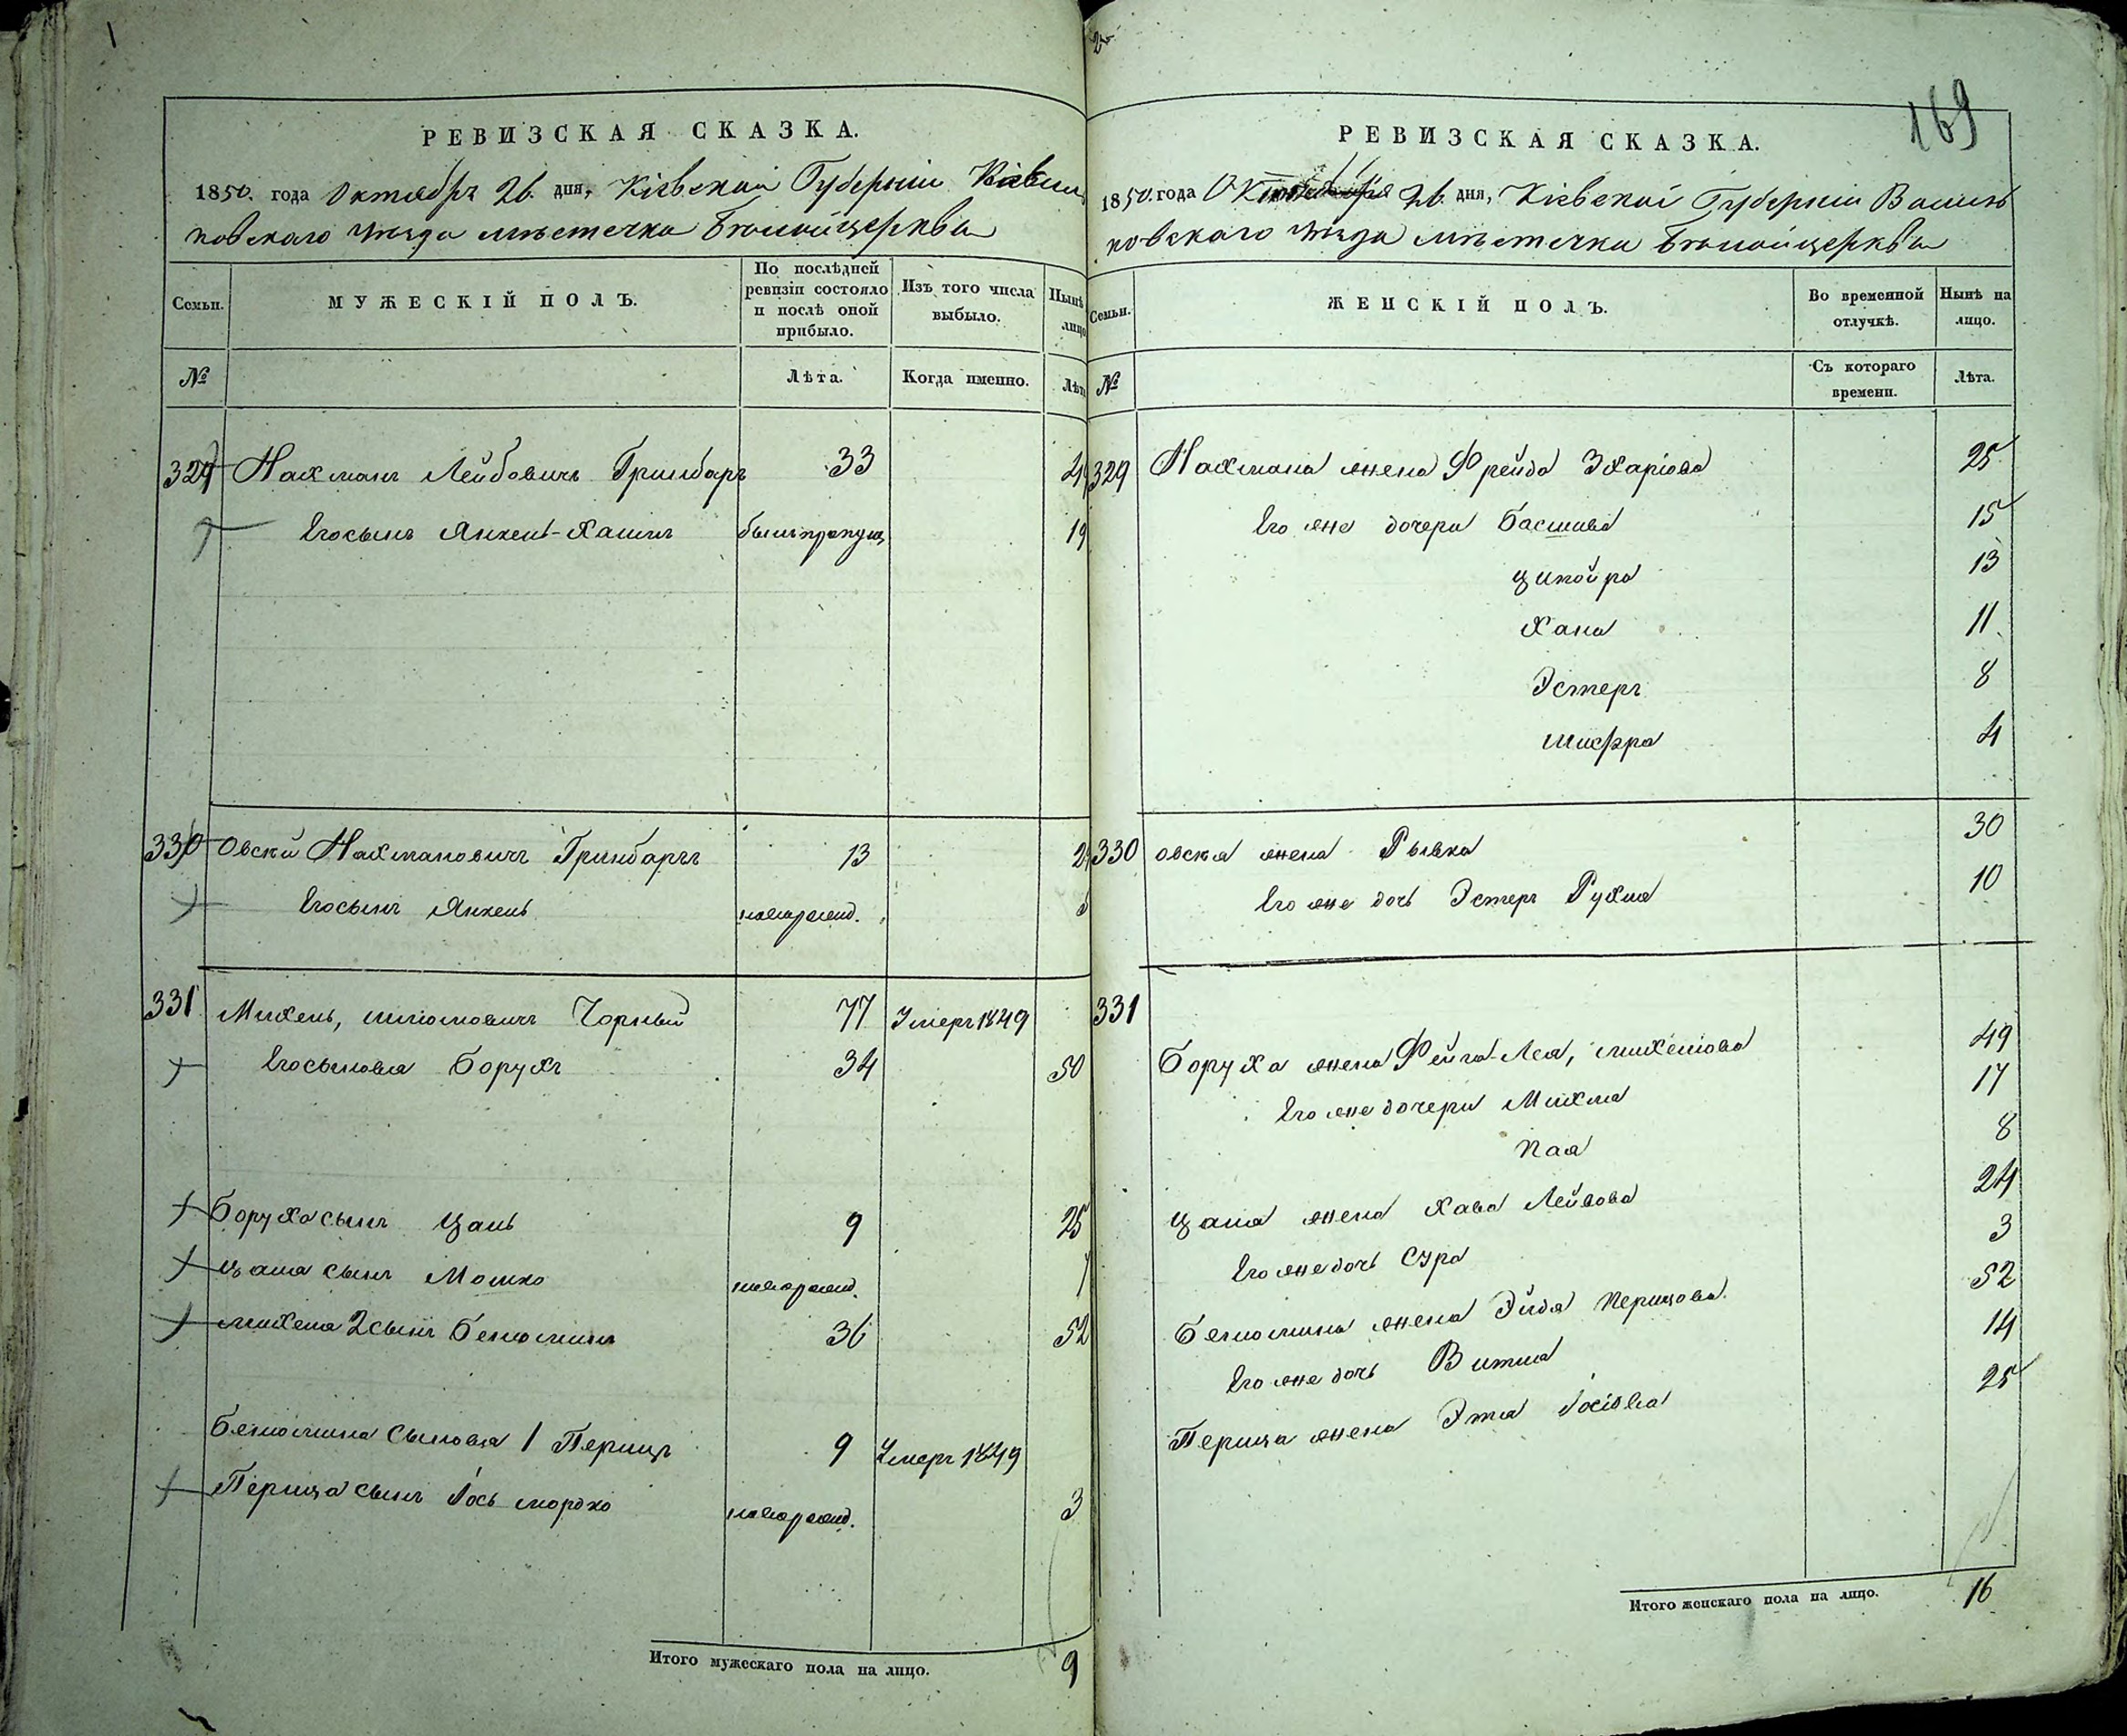 РЕВИЗСКАЯ СКАЗКА.
1850. года Октября 26. дня, Кіевской Губерніи Васил
ковскаго уѣзда мѣстечка Бѣлойцеркви
Семьи.
МУЖЕСКІЙ ПОЛЪ.
По послѣдней ревизіи состояло и послѣ оной прибыло.
Изъ того числа выбыло.
Нынѣ лицо
№
Лѣта.
Когда именно.
Лѣта
329 Нахманъ Лейбовичъ Гринбаръ 33 49
Его сынъ Янкель-Хаимъ былъ пропущ 19
330 Овсѣй Нахмановичъ Гринбаръ 13 29
Его сынъ Янкель новорожд.
331 Михель, Шліомовичъ Чорный 77 Умеръ 1849
Его сыновья Борухъ 34 50
Боруха сынъ Цаль 9 25
Цаля сынъ Мошко новорожд. 1
Михеля 2 сынъ Беніоминъ 36 52
Беніомина сыновья 1 Перицъ 9 Умеръ 1849
Перица сынъ Іось Мордко новорожд. 3
Итого мужескаго пола на лицо. 9
169
РЕВИЗСКАЯ СКАЗКА.
1850. года Октября 26. дня, Кіевской Губерніи Василь
ковскаго уѣзда мѣстечка Бѣлойцеркви
Семьи.
ЖЕНСКІЙ ПОЛЪ.
Во временной отлучкѣ.
Нынѣ на лицо.
№
Съ котораго времени.
Лѣта.
329 Нахмана жена Фрейда Зхаріова 25
Его же дочери Басшива 15
Ципойра 13
Хана 11
Эстеръ 8
Шифра 4
330 Овсѣя жена Рывка 30
Его же дочь Эстеръ Рухля 10
331
Боруха жена Фейга-Лея, Михелова 49
Его же дочери Михля 17
Пая 8
Цаля жена Хава Лейбова 24
Его же дочь Сура 3
Беніомина жена Эйдя Перицова 52
Его же дочь Витля 14
Перица жена Этя Іосіова 25
Итого женскаго пола на лицо. 16